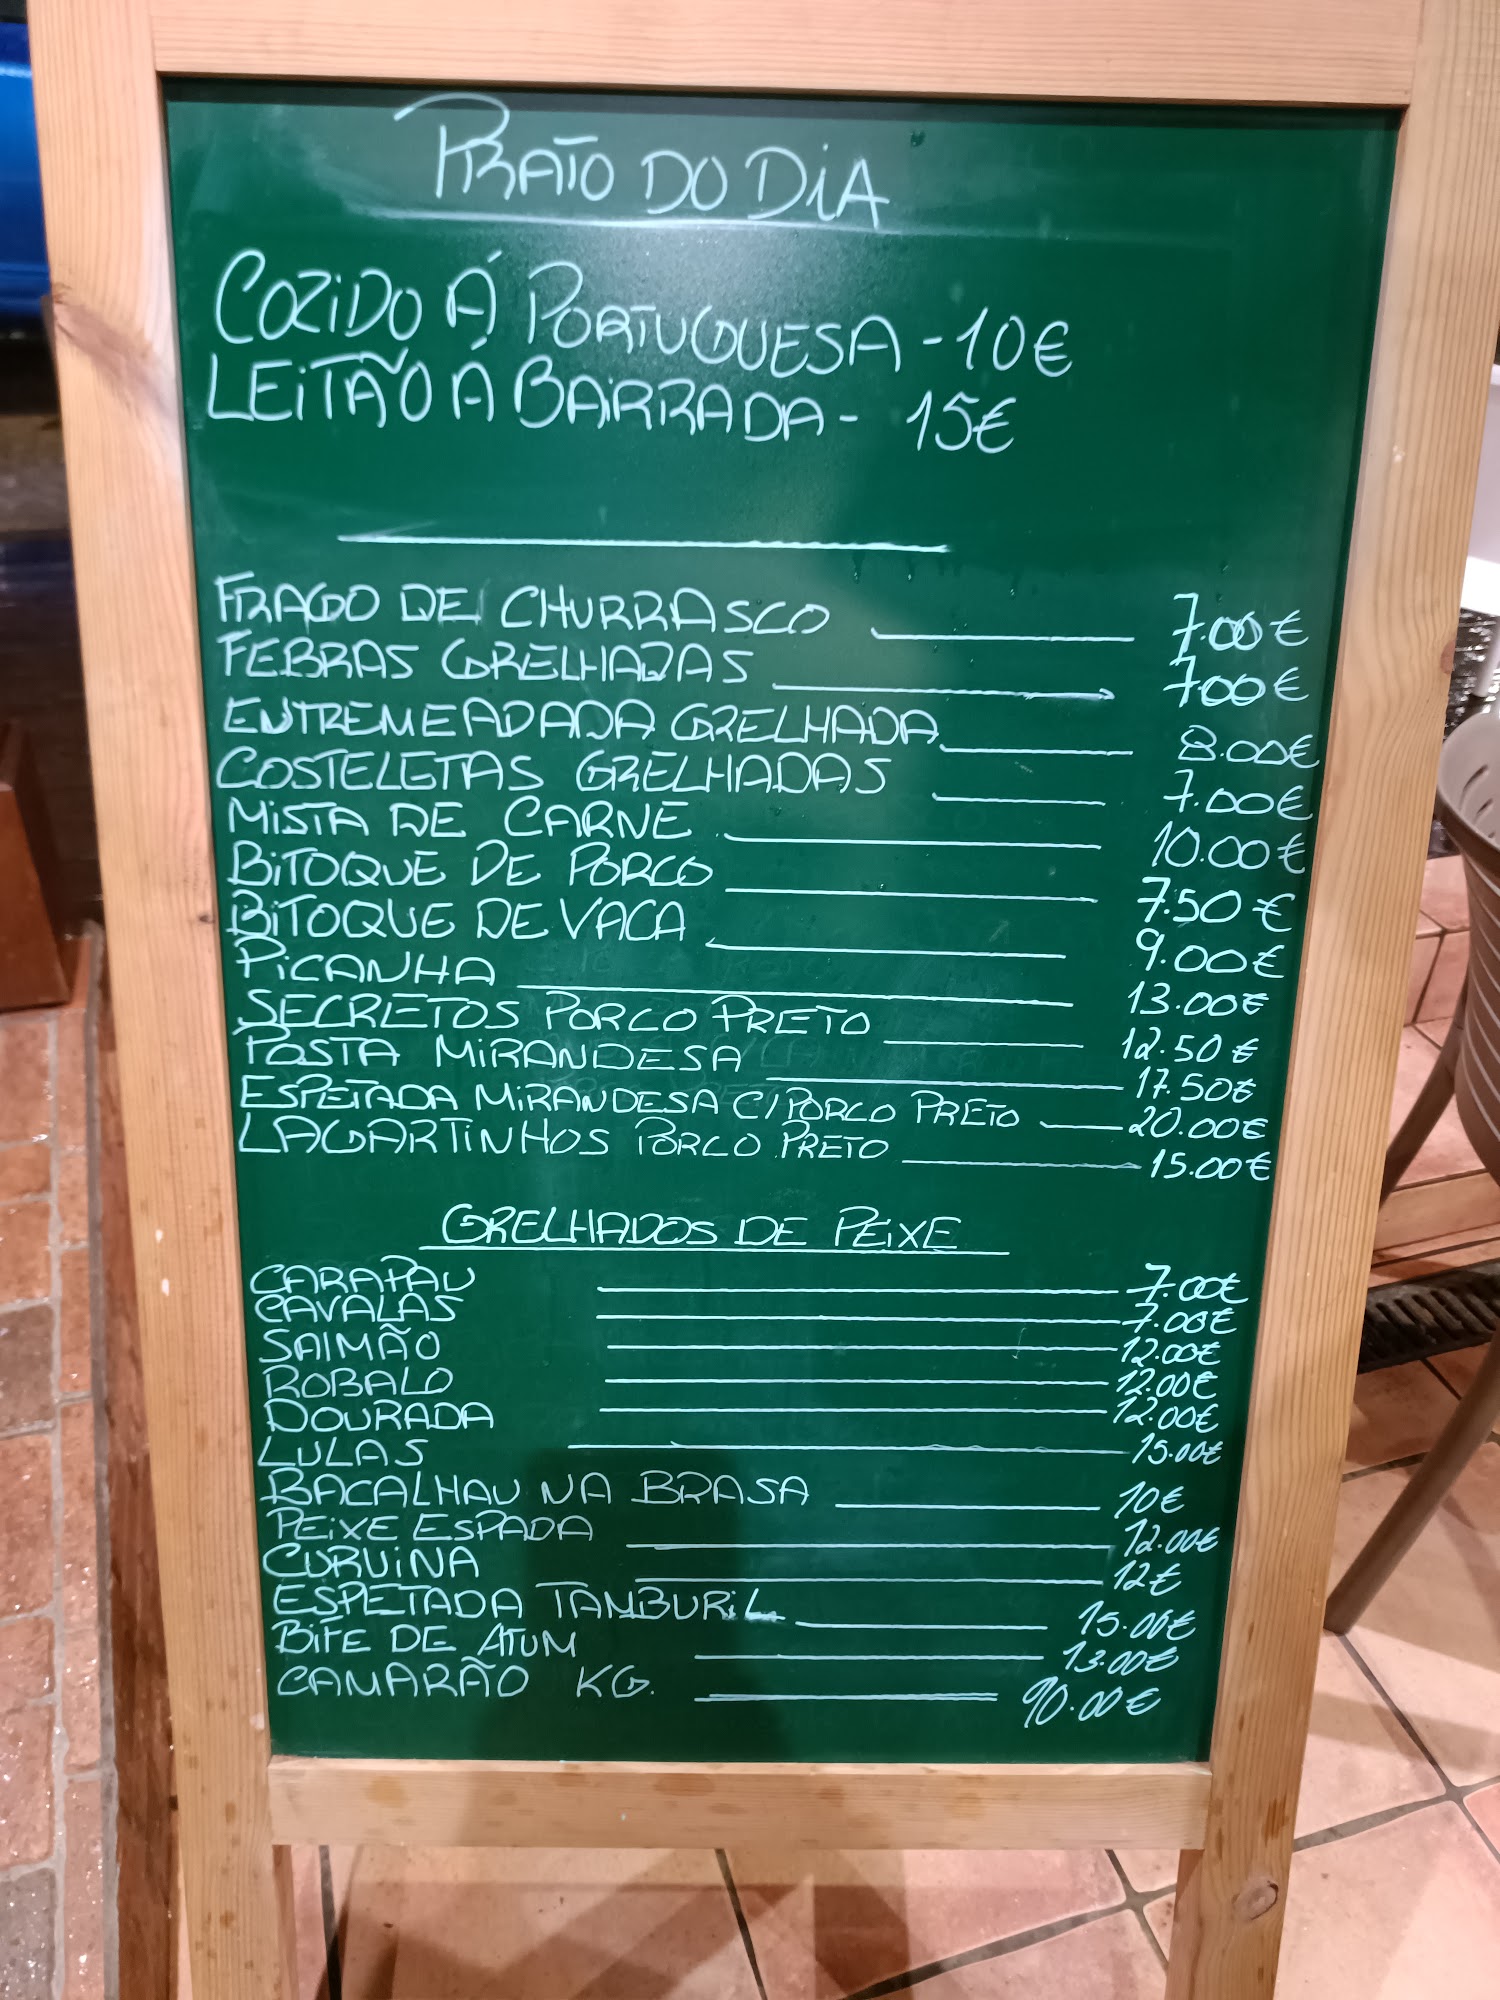 PRATO DO DIA
COZIDO Á PORTUGUESA - 10€
LEITÃO Á BAIRRADA - 15€
FRAGO DE CHURRASCO 7.00€
FEBRAS GRELHADAS 7.00€
ENTREMEADADA GRELHADA 8.00€
COSTELETAS GRELHADAS 7.00€
MISTA DE CARNE 10.00€
BITOQUE DE PORCO 7.50€
BITOQUE DE VACA 9.00€
PICANHA 13.00€
SECRETOS PORCO PRETO 12.50€
POSTA MIRANDESA 17.50€
ESPETADA MIRANDESA C/PORCO PRETO 20.00€
LAGARTINHOS PORCO PRETO 15.00€
GRELHADOS DE PEIXE
CARAPAU 7.00€
CAVALAS 7.00€
SALMÃO 12.00€
ROBALO 12.00€
DOURADA 12.00€
LULAS 15.00€
BACALHAU NA BRASA 10€
PEIXE ESPADA 12.00€
CURVINA 12€
ESPETADA TAMBURIL 15.00€
BIFE DE ATUM 13.00€
CAMARÃO KG. 90.00€